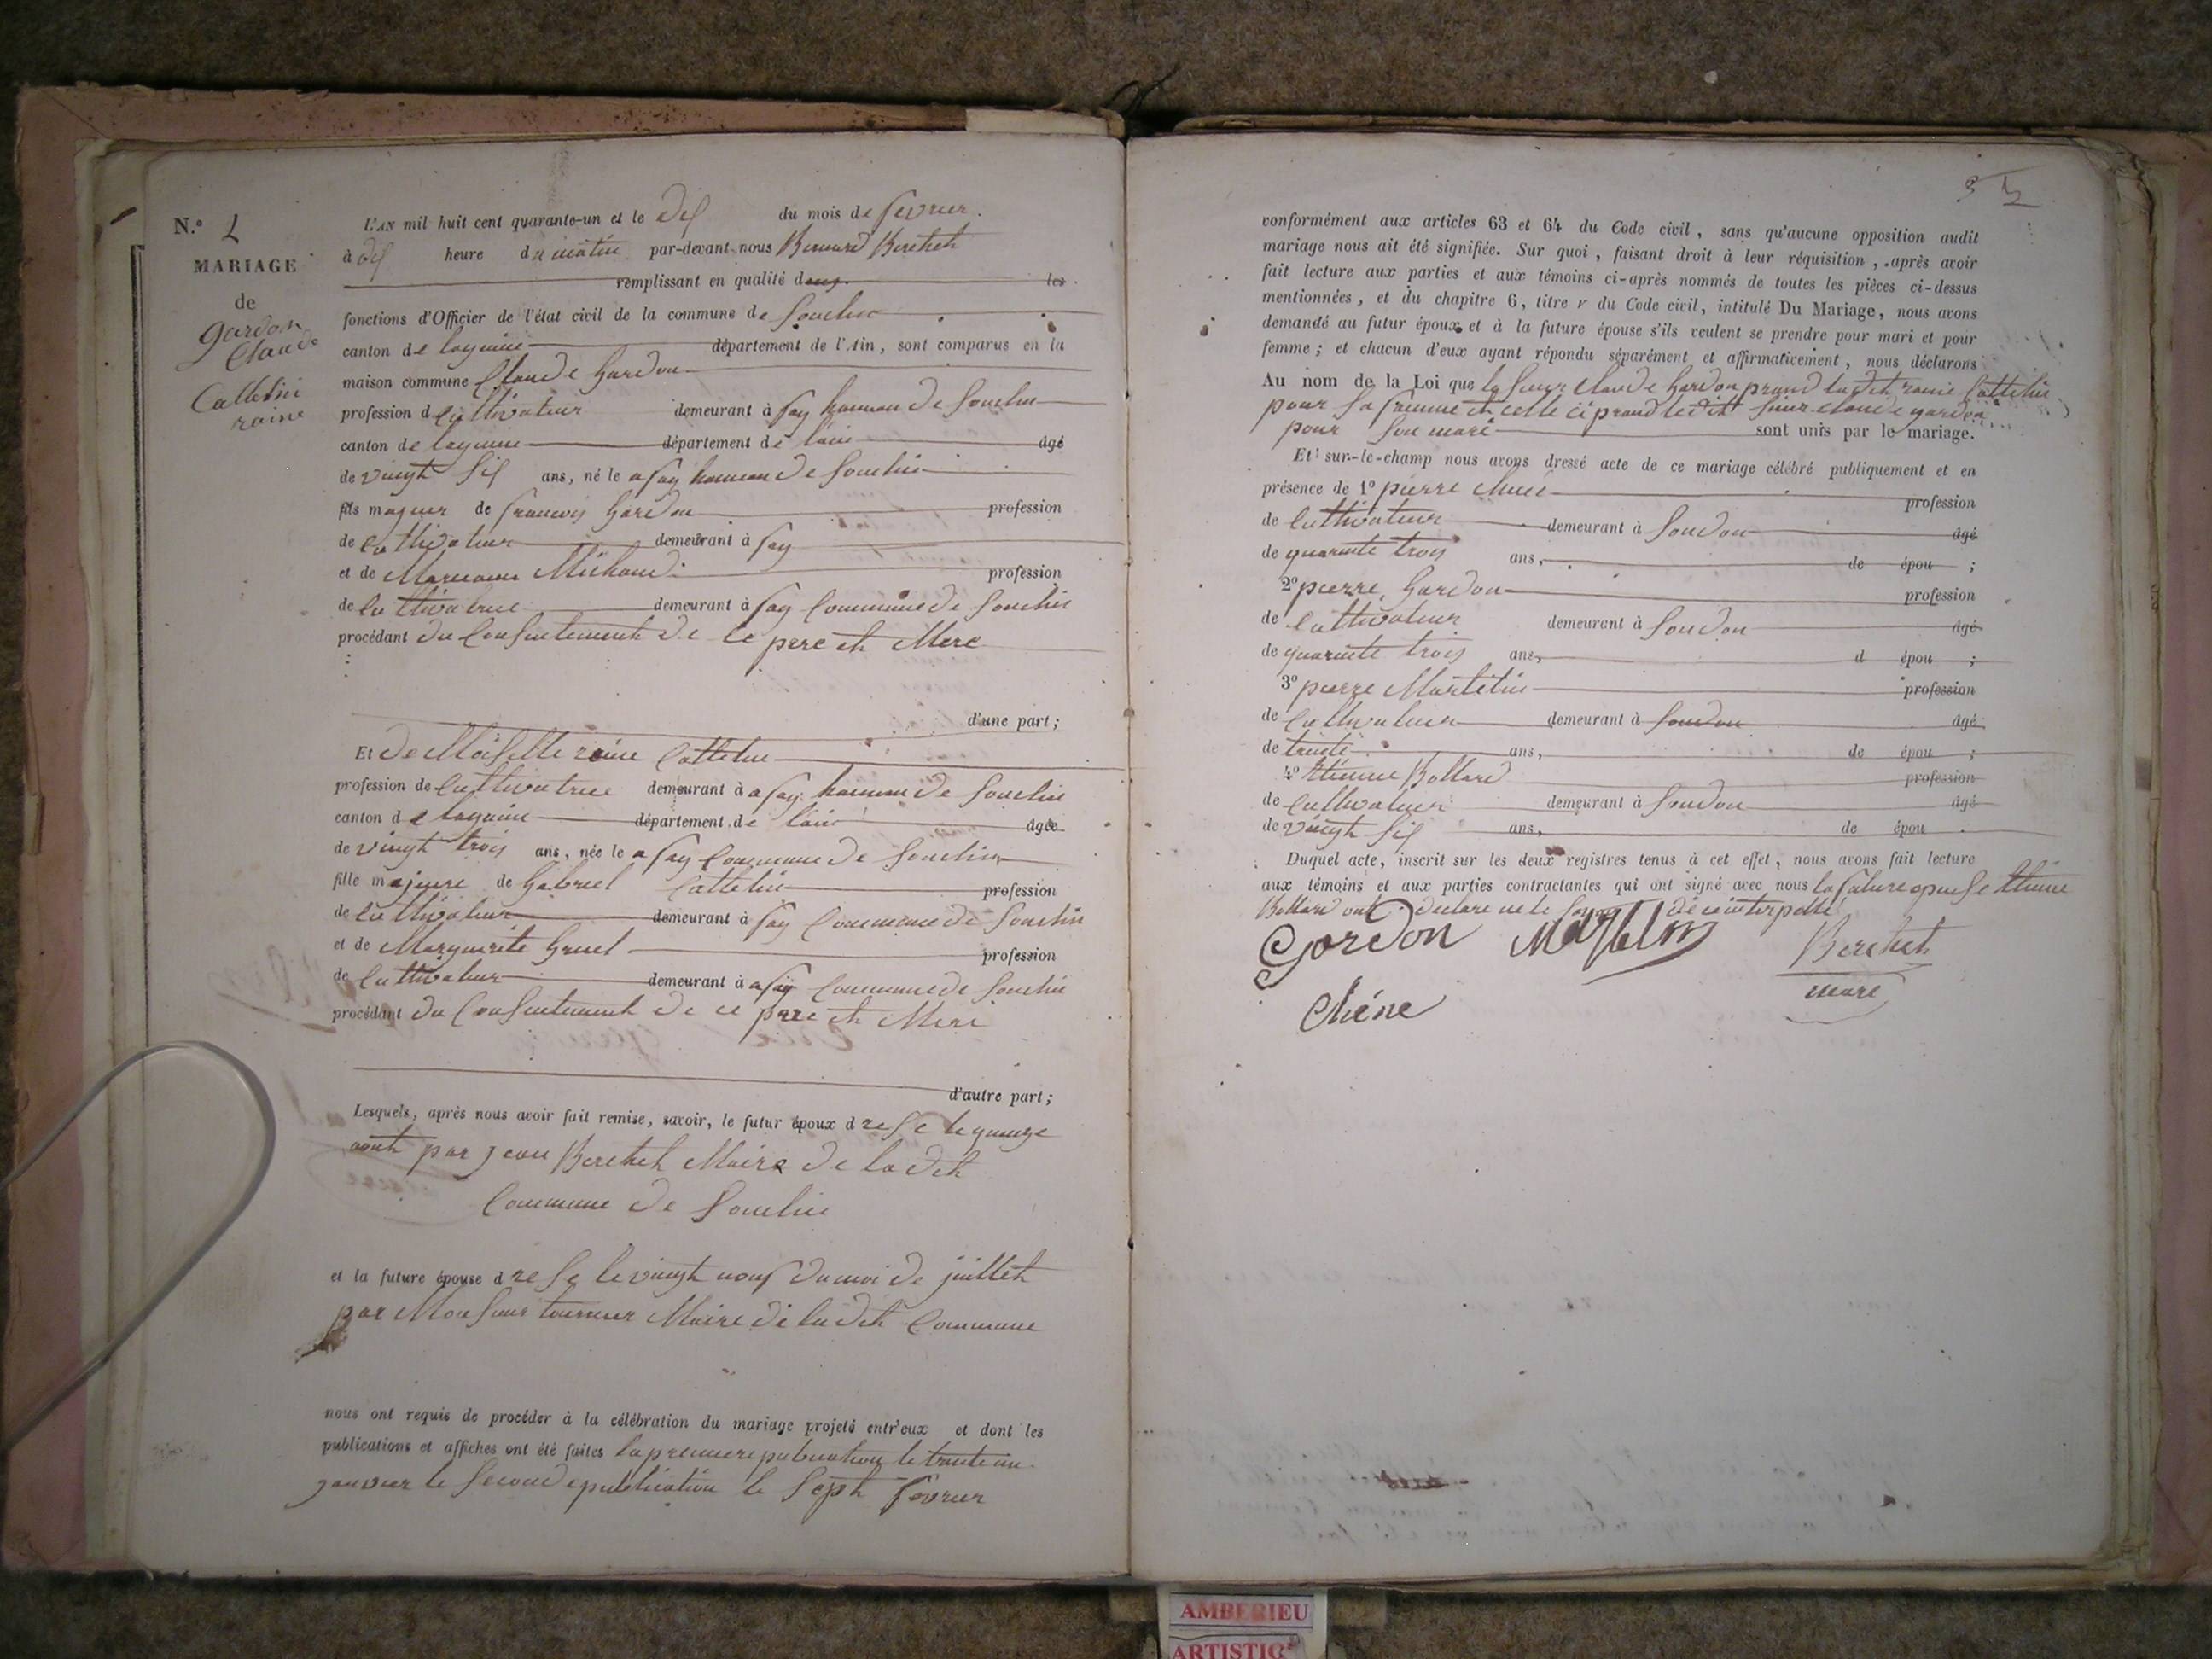 N.° 2
MARIAGE
de
gardon
Claude
Cattelin
raine
L'AN mil huit cent quarante-un et le dix du mois de fevrier.
à dix heure du matin par-devant nous Bernard Berthet
remplissant en qualité de les
fonctions d'Officier de l'état civil de la commune de Souclin
canton de lagnieu département de l'Ain, sont comparus en la
maison commune Claude Gardon
profession d cultivateur demeurant à fay hameau de Souclin
canton de lagnieu département de l'ain âgé
de vingt six ans, né le a fay hameau de Souclin
fils majeur de francois Gardon profession
de cultivateur demeurant à fay
et de Marianne Michaud profession
de cultivatrice demeurant à fay Commune de Souclin
procédant du Consentement de ce pere et Mere
d'une part;
Et demoiselle raine Cattelin
profession de Cultivatrice demeurant à a fay hameau de Souclin
canton de lagnieu département de l'ain âgée
de vingt trois ans, née le a fay Commune de Souclin
fille majeure de Gabriel Cattelin profession
de Cultivateur demeurant à fay Commune de Souclin
et de Marguerite Gruel profession
de Cultivateur demeurant à a fay Commune de Souclin
procédant du Consentement de ce pere et Mere
d'autre part;
Lesquels, après nous avoir fait remise, savoir, le futur époux d resse le quinze
aout par jean Berthet Maire de la dit
Commune de Souclin
et la future épouse d resse le vingt nouf du moi de juillet
par Monsieur tournier Maire de la dit Commune
nous ont requis de procéder à la célébration du mariage projeté entr'eux et dont les
publications et affiches ont été faites la premiere publication le trante un
janvier le Seconde publication le Sept fevrier
conformément aux articles 63 et 64 du Code civil, sans qu'aucune opposition audit
mariage nous ait été signifiée. Sur quoi, faisant droit à leur réquisition, après avoir
fait lecture aux parties et aux témoins ci-après nommés de toutes les pièces ci-dessus
mentionnées, et du chapitre 6, titre V du Code civil, intitulé Du Mariage, nous avons
demandé au futur époux et à la future épouse s'ils veulent se prendre pour mari et pour
femme; et chacun d'eux ayant répondu séparément et affirmativement, nous déclarons
Au nom de la Loi que le Sieur Claude Gardon prand la dit raine Cattelin
pour Sa femme et celle ci prand le dit Sieur claude gardon
pour Son mari sont unis par le mariage.
Et sur-le-champ nous avons dressé acte de ce mariage célébré publiquement et en
présence de 1° pierre Chene profession
de Cultivateur demeurant à Soudon âgé
de quarante trois ans, de épou ;
2° pierre Gardon profession
de Cultivateur demeurant à Soudon âgé
de quarante trois ans, d épou ;
3° pierre Martelin profession
de Cultivateur demeurant à Soudon âgé
de trente ans, de épou ;
4° Etienne Bollard profession
de Cultivateur demeurant à Soudon âgé
de vingt Six ans, de épou .
Duquel acte, inscrit sur les deux registres tenus à cet effet, nous avons fait lecture
aux témoins et aux parties contractantes qui ont signé avec nous la future epouse Etiene
Bollard ont declare ne le Savoir de ce interpelle
Gardon Martelin Berthet
Chéne maire
AMBERIEU
ARTISTIC